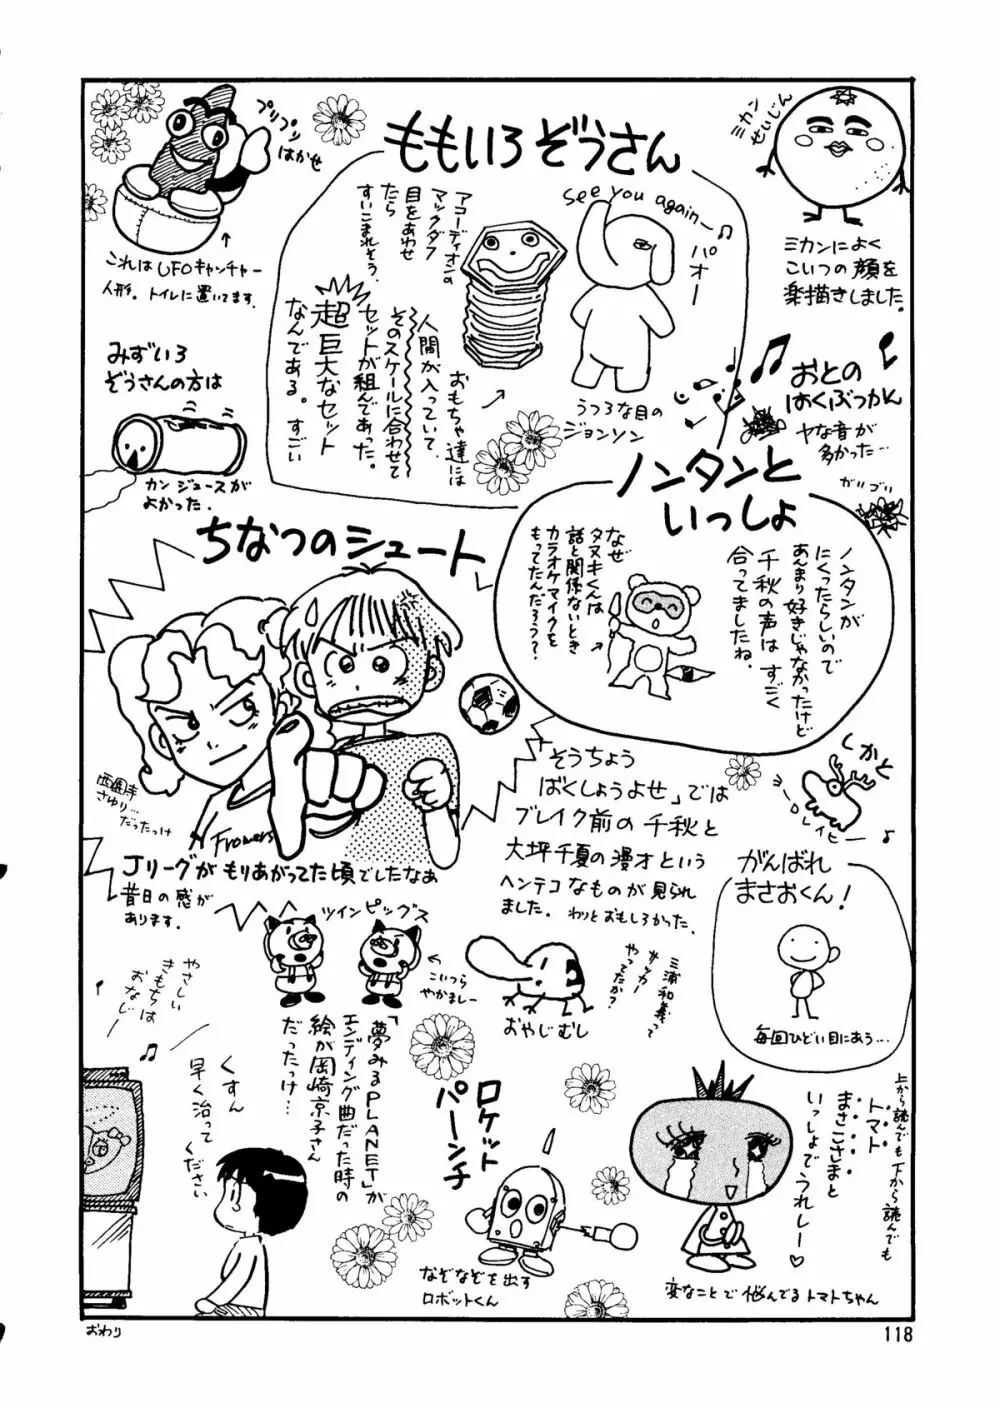 ももいろぞうさん
プリプリ
はかせ
これはUFOキャンチャー
人形。トイレに置いてます。
see you again—♪
パオー
アコーディオンの
マックダフ
目をあわせ
たら
すいこまれそう。
おもちゃ達には
人間が入っていて
そのスケールに合わせて
セットが組んであった。
超巨大なセット
なんである。すごい
うつろな目の
ジョンソン
ミカン
せいじん
ミカンによく
こいつの顔を
楽描きしました。
みずいろ
ぞうさんの方は
カンジュースが
よかった.
おとの
はくぶつかん
ヤな音が
多かった…
ガリゴリ
ノンタンと
いっしょ
ノンタンが
にくったらしいので
あんまり好きじゃなかったけど
千秋の声はすごく
合ってましたね。
なぜ
タヌキくんは
話と関係ないとき
カラオケマイクを
もってたんだろう?
ちなつのシュート
西園寺
さゆり…
だったっけ
Flowers
Jリーグがもりあがってた頃でしたなあ
昔日の感が
あります.
「そうちょう
ばくしょうよせ」では
ブレイク前の千秋と
大坪千夏の漫才という
ヘンテコなものが見られ
ました. わりとおもしろかった.
しかと
レイヒー♪
がんばれ
まさおくん!
毎回ひどい目にあう…
ツインピッグス
←こいつら
やかましー
おやじむし
三浦和義って
サッカー
やってたか?
やさしい
きもちは
おなじー
くすん
早く治って
ください
「夢みるPLANET」が
エンディング曲だった時の
絵が岡崎京子さん
だったっけ…
ロケット
パーンチ
なぞなぞを出す
ロボットくん
上から読んでも下から読んでも
トマト
まさこさまと
いっしょでうれしー♡
変なことで悩んでるトマトちゃん
おわり
118